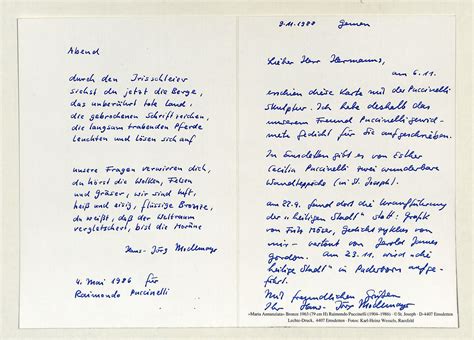 Abend
durch den Irisschleier
siehst du jetzt die Berge,
das unberührt tote Land,
die gebrochenen Schriftzeichen,
die langsam trabenden Pferde
leuchten und lösen sich auf
unsere Fragen verwirren dich,
du hörst die Wolken, Felsen
und Gräser, wir sind luft,
heiß und eisig, flüssige Bronze,
du weißt, daß der Weltraum
vergletschert, bist die Moräne
Hans-Jörg Modlmayr
4. Mai 1986 für
Raimondo Puccinelli
9.11.1988 Gemen
Lieber Herr Hermanns,
am 6.11.
erschien diese Karte mit der Puccinelli
Skulptur. Ich habe deshalb das
unserem Freund Puccinelli gewid-
mete Gedicht für Sie aufgeschrieben.
In Emsdetten gibt es von Esther
Cecilia Puccinelli zwei wunderbare
Wandteppiche (in St. Joseph).
am 22.9. fand dort die Uraufführung
der "heiligen Stadt" statt: Graphik
von Fritz Möser, Gedichtzyklus von
mir - vertont von Jarold James
Gordon. am 23.11. wird "die
heilige Stadt" in Paderborn aufge-
führt.
Mit freundlichen Grüßen
Ihr Hans-Jörg Modlmayr
»Maria Annunziata« Bronze 1963 (79 cm H) Raimondo Puccinelli (1904–1986) · © St. Joseph · D-4407 Emsdetten
Lechte-Druck, 4407 Emsdetten · Fotos: Karl-Heinz Wessels, Raesfeld